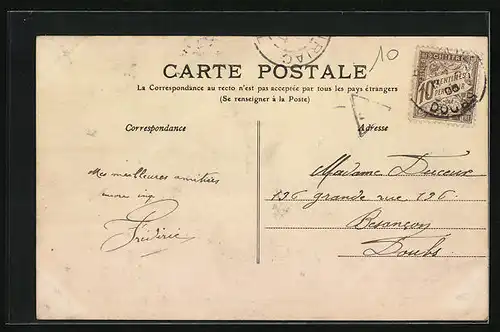 10
CARTE POSTALE
La Correspondance au recto n'est pas acceptée par tous les pays étrangers
(Se renseigner à la Poste)
Correspondance
Adresse
A CHIFFRE
10 CENTIMES
A PERCEVOIR
DOUBS
Mes meilleures amitiés
Frédéric
Madame
136 grande rue 136
Besançon
Doubs